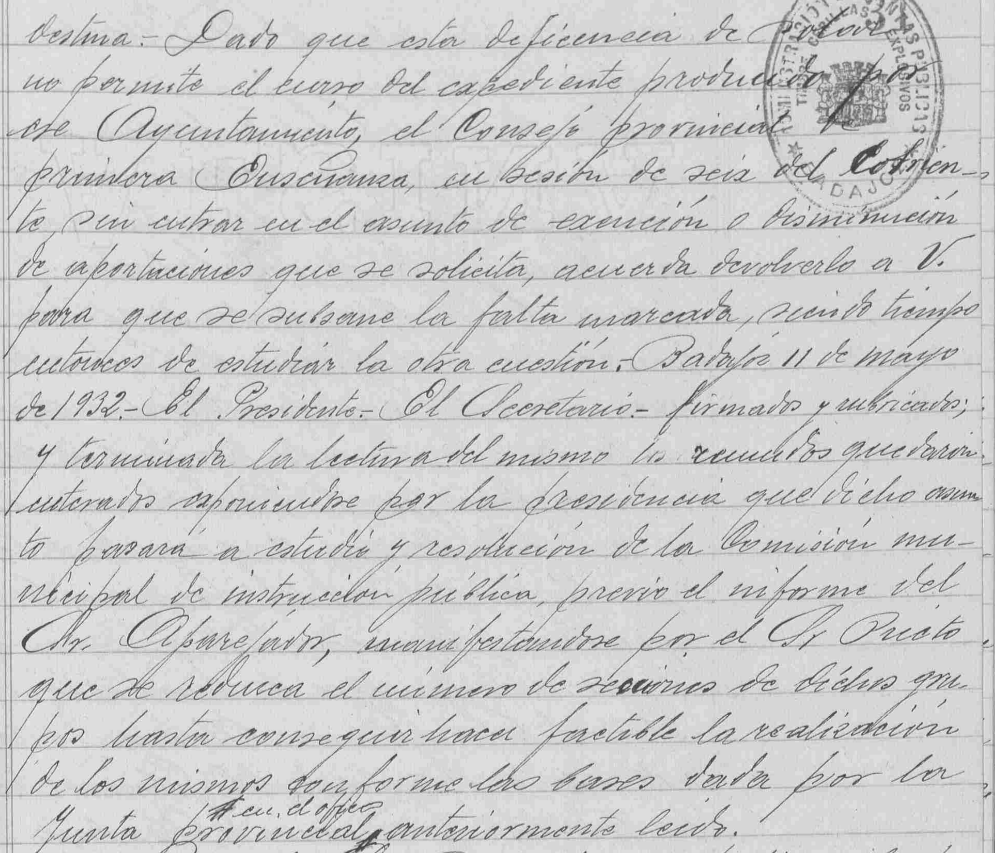 destina.- Dado que esta deficencia de
no permite el curso del expediente producido por
ese Ayuntamiento, el Consejo provincial
primera Enseñanza, en sesión de seis del corrien-
te, sin entrar en el asunto de exención o disminución
de aportaciones que se solicita, acuerda devolverlo a V.
para que se subsane la falta marcada, siendo tiempo
entonces de estudiar la otra cuestión.- Badajoz 11 de mayo
de 1932.- El Presidente.- El Secretario.- firmados y rubricados;
y terminada la lectura del mismo los reunidos quedaron
enterados exponiendose por la presidencia que dicho asun
to pasará a estudio y resolución de la Comisión mu-
nicipal de instrucción pública, previo el informe del
Sr. Aparejador, manifestandose por el Sr Prieto
que se reduzca el número de secciones de dichos gru-
pos hasta conseguir hacer factible la realización
de los mismos conforme las bases dada por la
en el ofico
Junta provincial anteriormente leido.
ADMINISTRACIÓN RENTAS PUBLICAS
EXPLOSIVOS
BADAJOZ